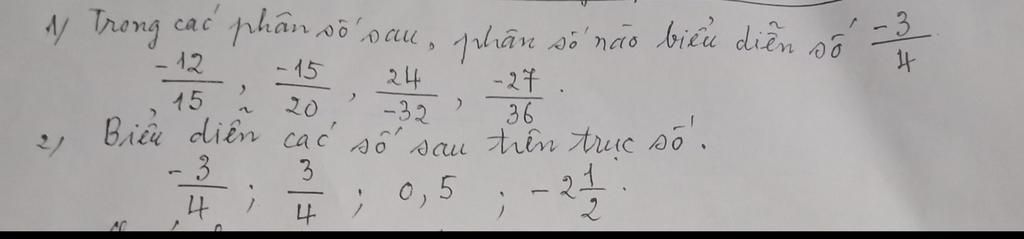 1) Trong các phân số sau, phân số nào biểu diễn số -3/4
-12/15, -15/20, 24/-32, -27/36.
2) Biểu diễn các số sau trên trục số.
-3/4; 3/4; 0,5; -2 1/2.